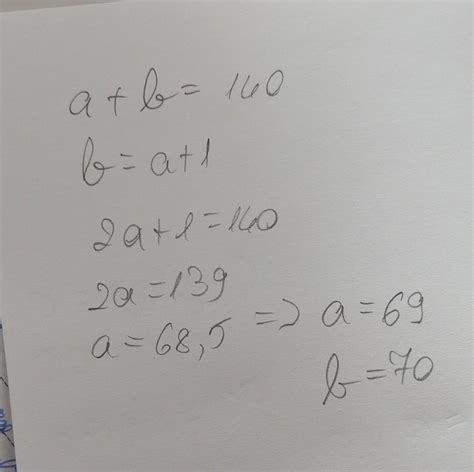 a + b = 140
b = a+1
2a+1=140
2a=139
a=68,5 => a=69
b=70